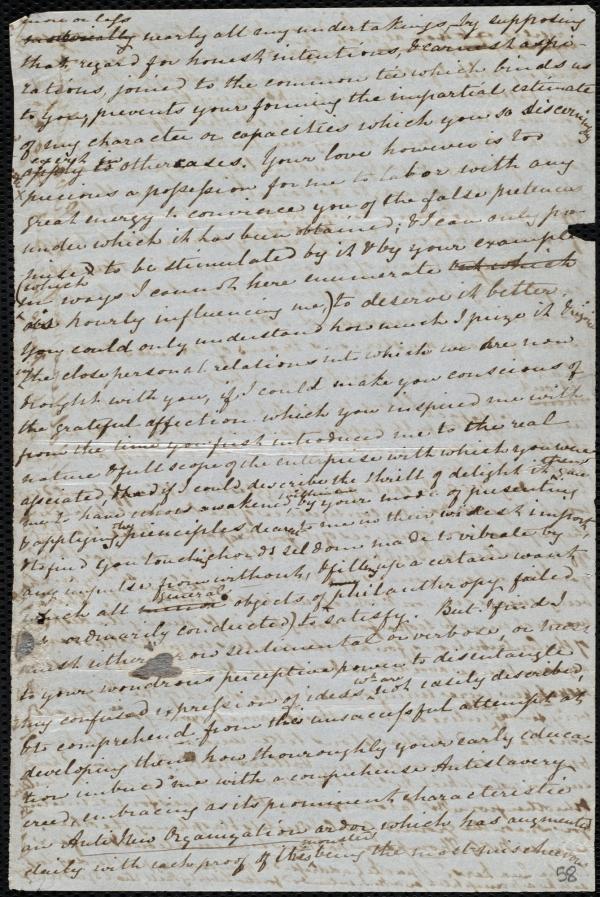 more or less
nearly all my undertakings by supposing
that, regard for honest intentions, & earnest aspi-
rations, joined to the common tie which binds us
to you, prevents your forming the impartial estimate
of my character or capacities which you so discerningly
apply to other cases. Your love however is too
precious a possession for me to labor with any
great energy to convince you of the false pretences
under which it has been obtained; & I can only pro-
mise to be stimulated by it & by your example
(which in ways I cannot here enumerate
is hourly influencing me,) to deserve it better.
You could only understand how much I prize it &
the close personal relations into which we are now
brought with you, if I could make you conscious of
the grateful affection which you inspired me with
from the time you first introduced me to the real
nature & full scope of the enterprise with which you were
associated & if I could describe the thrill of delight
me to have awakened by your mode of presenting
& applying the principles dear to me in their widest import,
find you touching chords seldom made to vibrate by
any impulse from without, & filling up a certain want
which all general objects of philanthropy failed
ordinarily conducted) to satisfy. But I find I
must either sentimental or verbose, or leave
to your wondrous perceptive power to disentangle
my confused expression of ideas, wh are not easily described,
& to comprehend from this unsuccessful attempt at
developing them how thouroughly your early educa-
tion imbued me with a comprehense Antislavery
creed, embracing as its prominent characteristic
an Anti New Organization ardor which has augmented
daily with each proof of its monster being the most mischievous
58